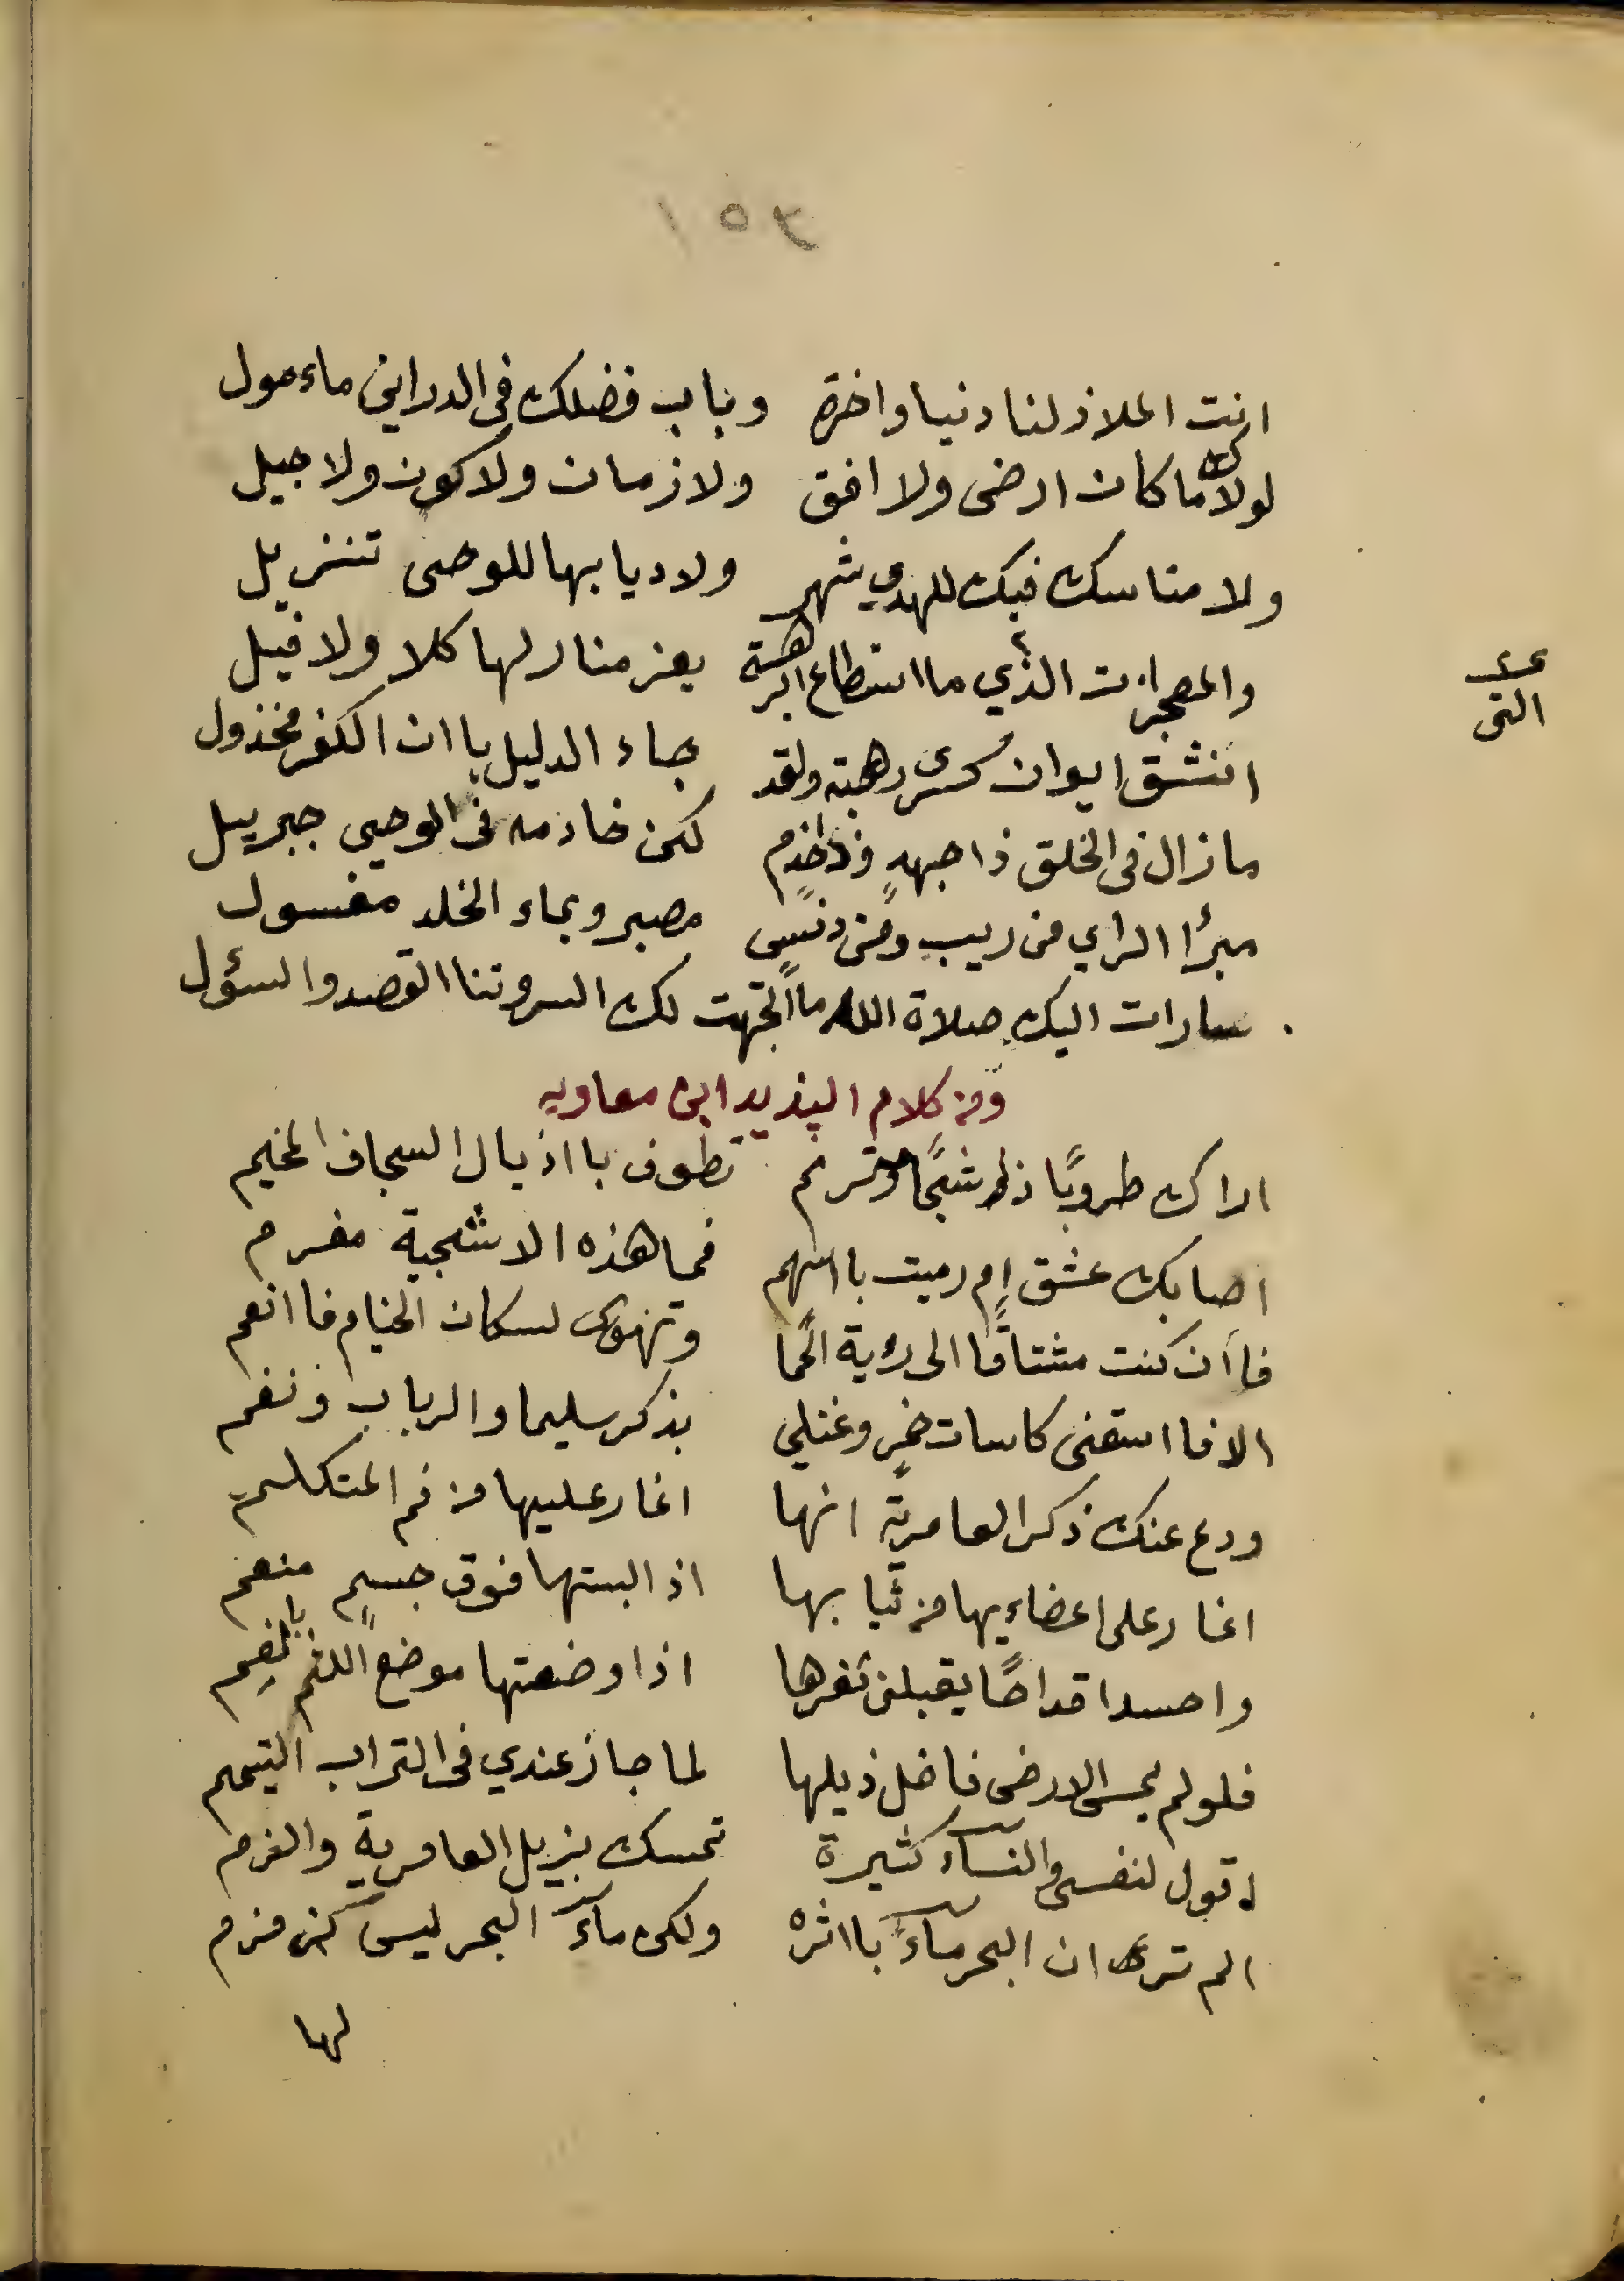 ٢٥١
انت الملاذ لنا دنيا واخرة وباب فضلك فى الدراين ماءمول
لولاك ما كان ارضى ولا افق ولا زمان ولا كون ولا جيل
ولا مناسك فيك للهدي شهر ولا ديا بها للوحى تنزيل
والمعجزات الذي ما استطاع ابرهة يعز منار لها كلا ولا فيل
التى
انشق ايوان كسرى رهبته ولقد جاء الدليل با ان الكفر مخذول
ما زال فى الخلق ذا جبهةٍ وذا خدم لكن خادمه فى الوحى جبريل
مبرأ الراي من ريب ومن دنسٍ وبماء الخلد مغسول
سارات اليك صلاة الله ما اتجهت لك السروتنا القصد والسؤل
ومن كلام اليذيد ابن معاويه
اراك طروبًا ذا شجًا وترنم تطوف با اذيال السجاف المخيم
اصابك عشق ام رميت با اسهم فما هذه الا سْجية مغرم
فا ان كنت مشتاقًا الى رءية الحما وتهوى لسكان الخيام فا انعم
الا فا استقنى كاسات خمرٍ وغنلي بذكر سليما والرباب ونغم
ودع عنك ذكر العامرية انها اغار عليها من فم المتكلم
اغار على اعضاءيها من ثيابها اذ البستها فوق جسمٍ منعم
واحسد اقداحًا يقبلن ثغرها اذا وضعتها موضع اللثم بالفم
فلو لم يمس الارض فاضل ذيلها لما جاز عندي فى التراب التيمم
اقول لنفسى والنسآء كثيرة تمسك بزيل العامرية والغرم
الم ترى ان البحر مآءً با اثره ولكن مآء البحر ليس كزمزم
لها